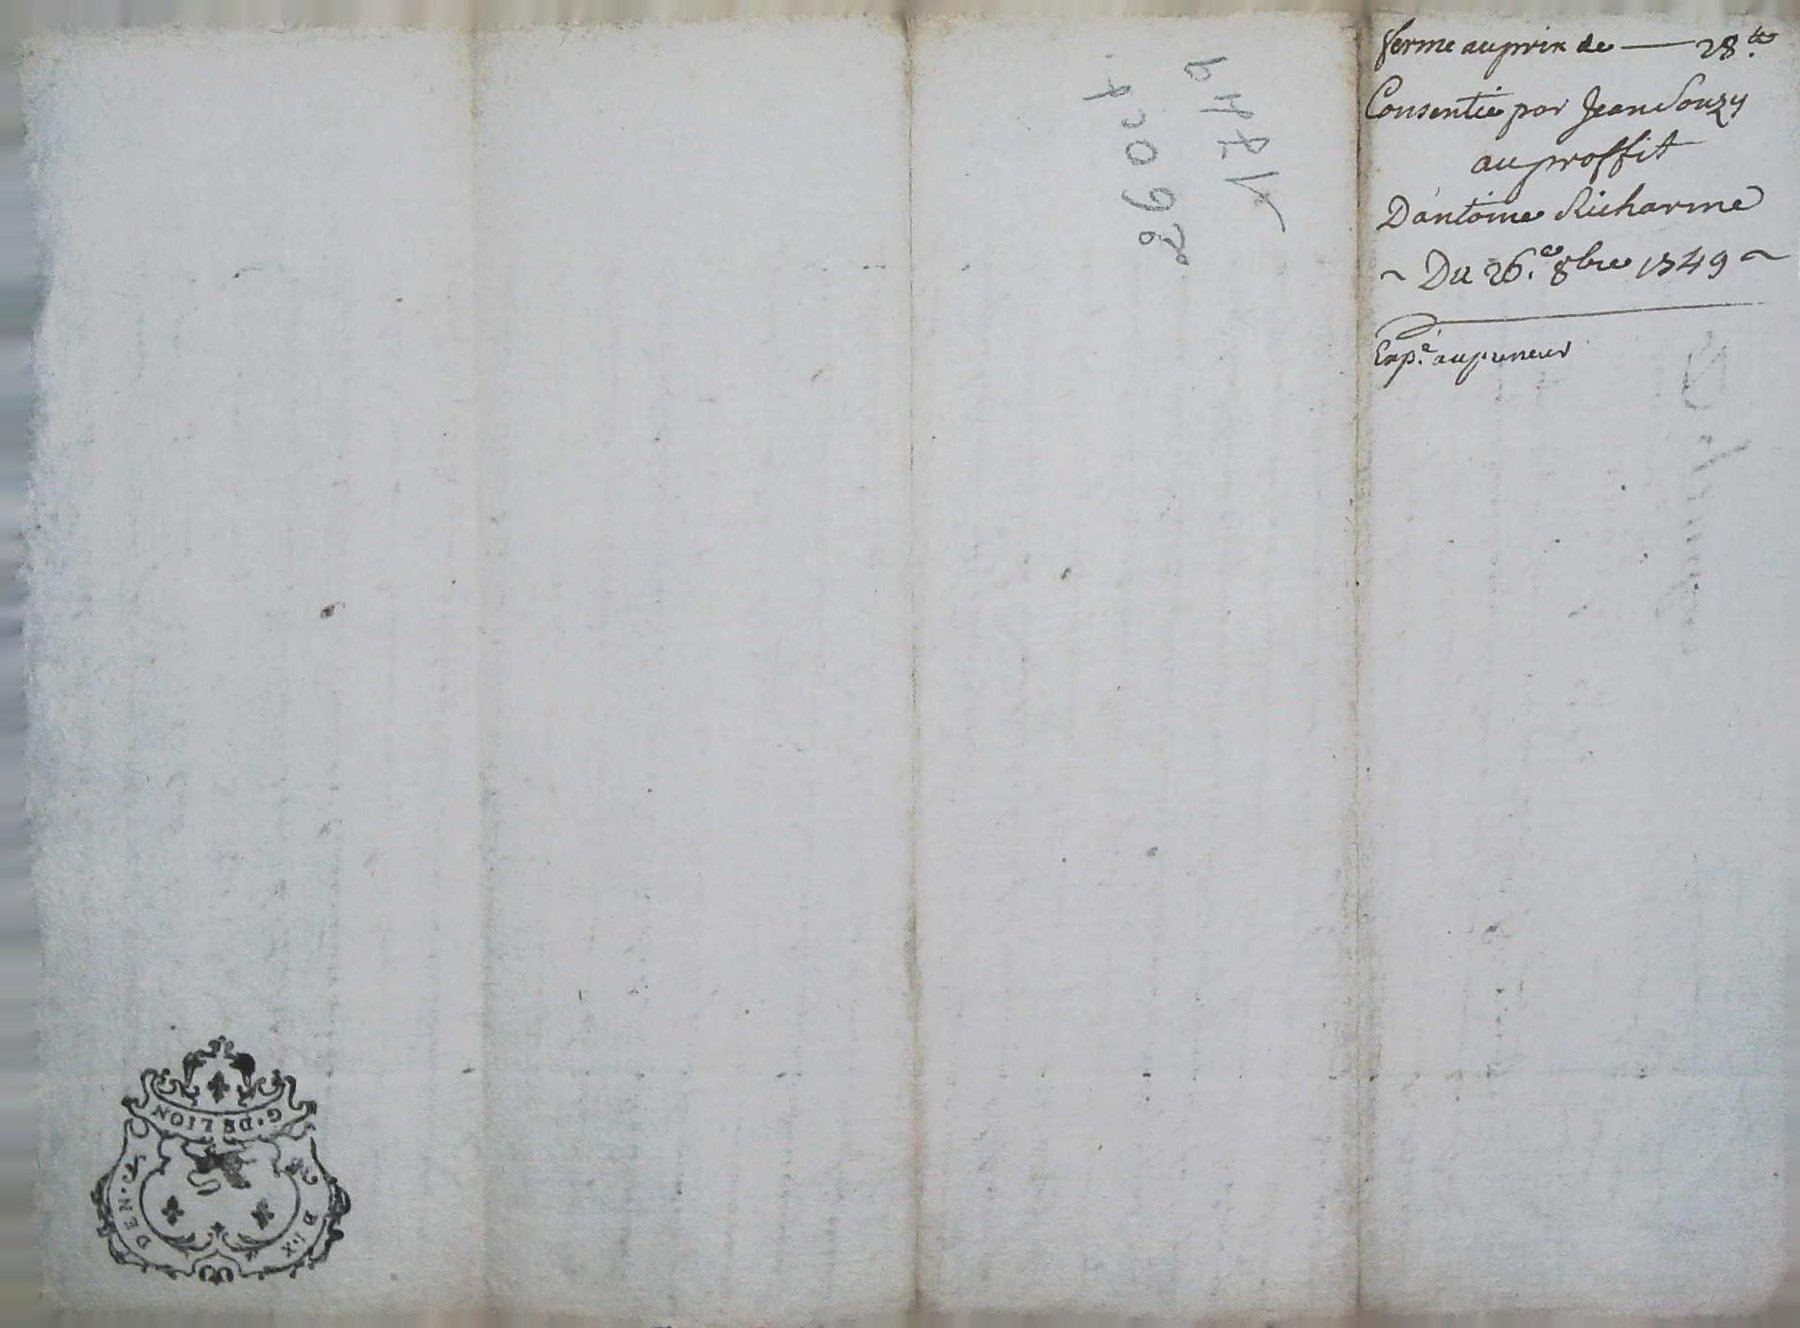 ferme au prix de — 28.tt
Consentie par Jean Souzy
au proffit
D'antoine Richarme
~ Du 26.e 8bre 1749 ~
Exp.e au preneur
G. DE LION
DEN
DIX